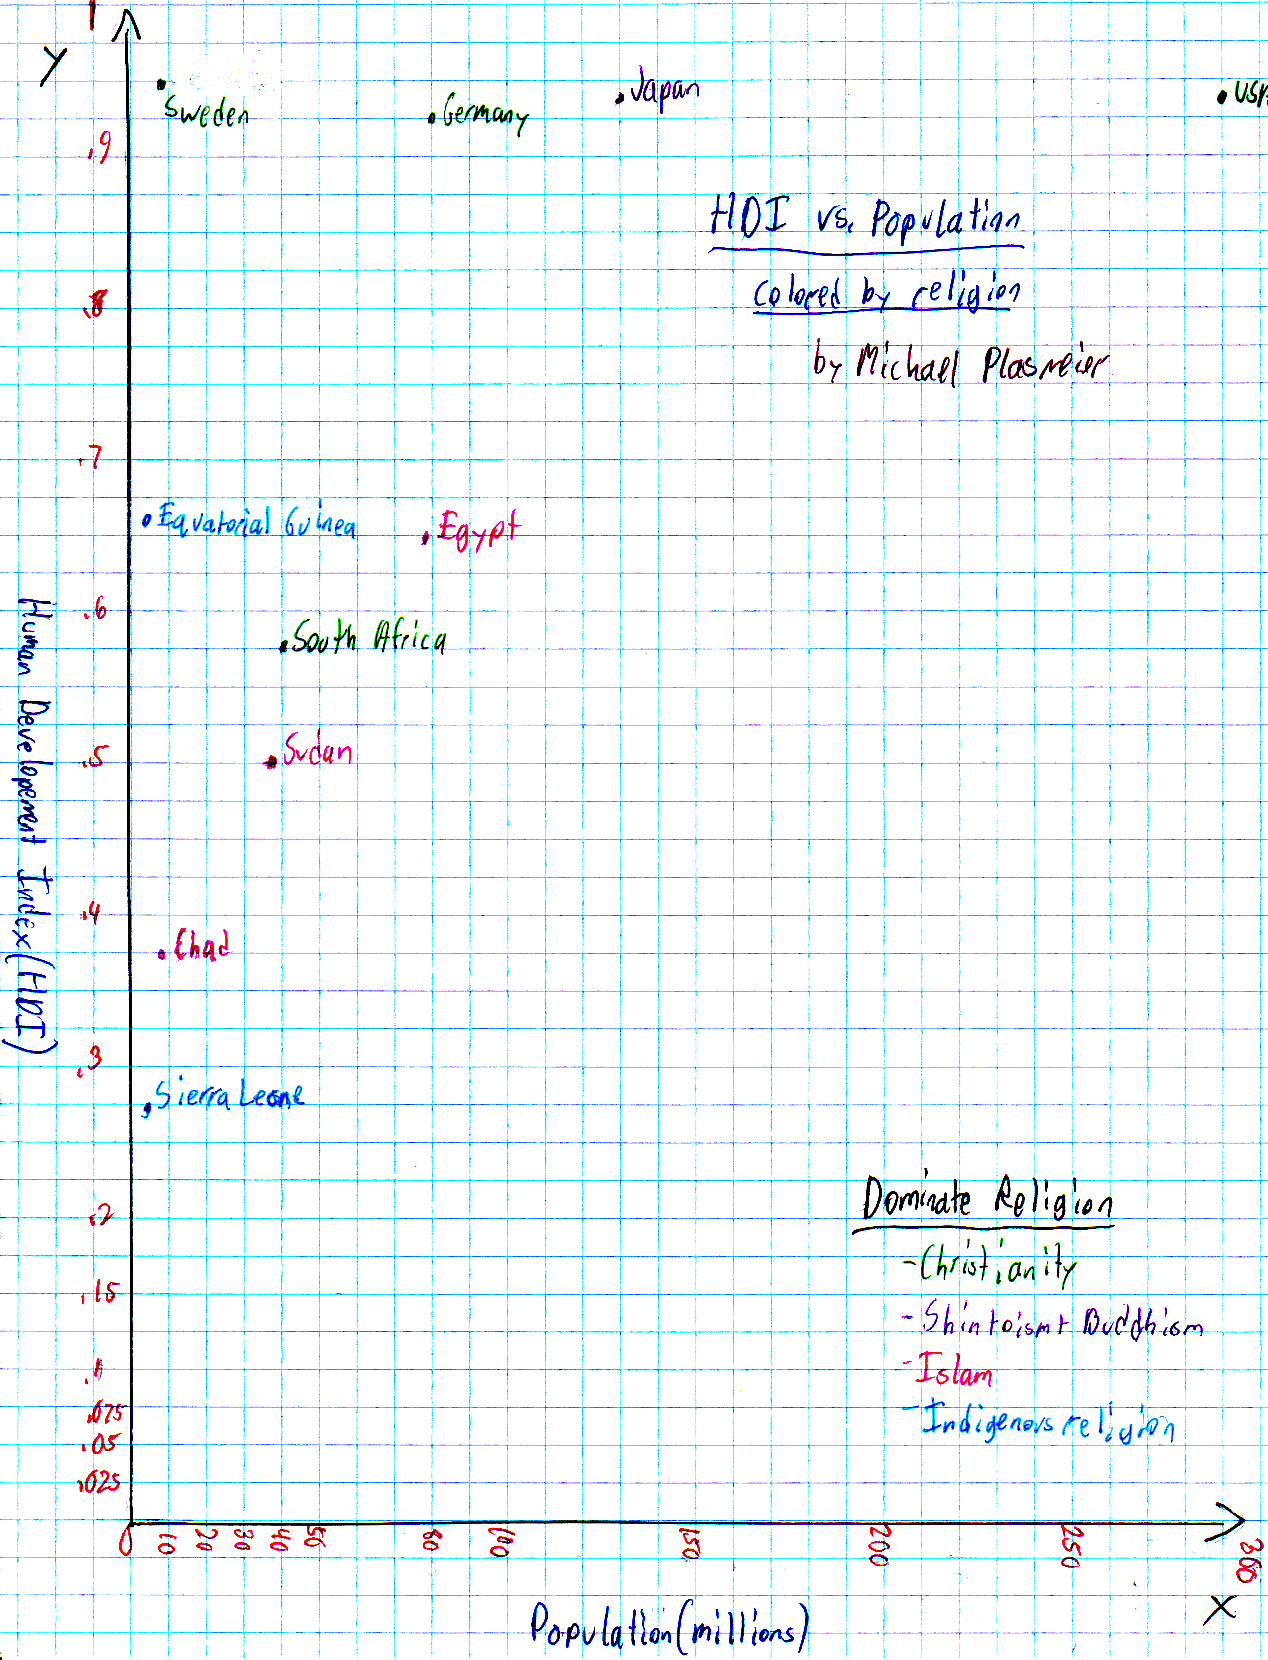 1
Y
Sweden
Germany
Japan
.9
HDI vs. Population
colored by religion
.8
by Michael Plasmeier
.7
Equatorial Guinea
Egypt
.6
South Africa
Human Developement Index (HDI)
.5
Sudan
.4
Chad
.3
Sierra Leone
.2
Dominate Religion
-Christianity
.15
-Shintoism + Buddhism
.1
-Islam
.075
-Indigenous religion
.05
.025
0 10 20 30 40 50 80 100 150 200 250 300
X
Population (millions)